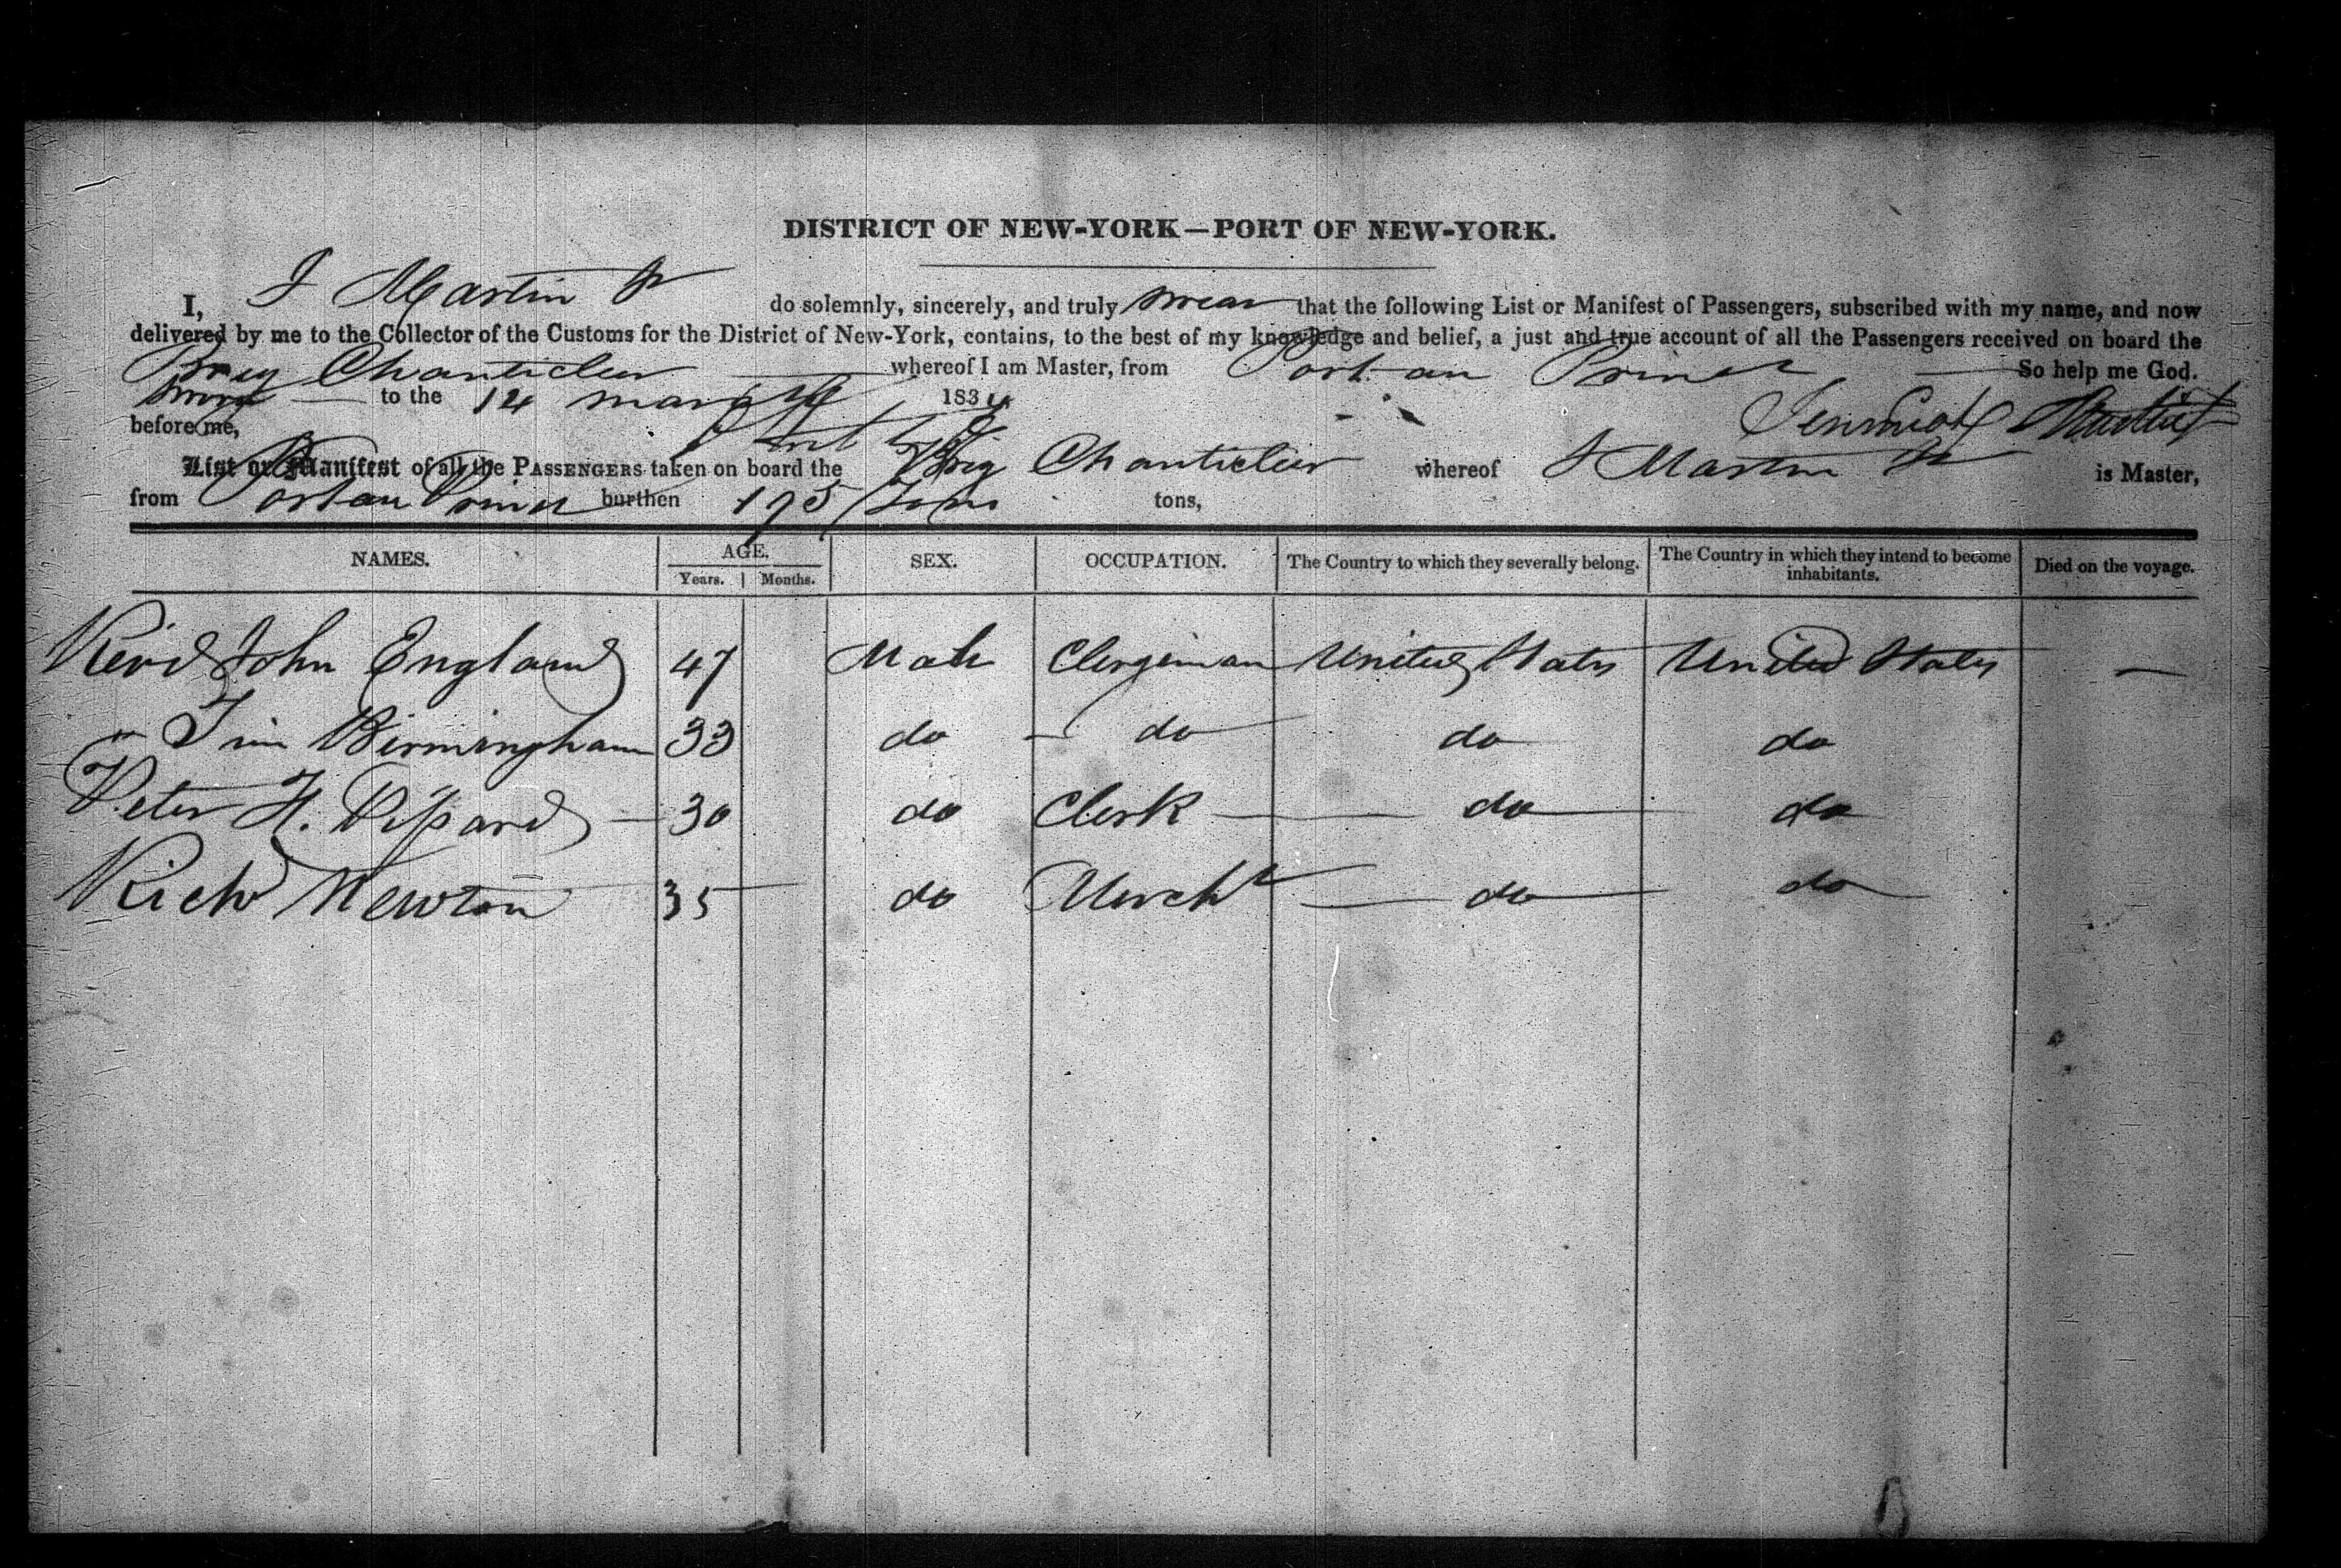 DISTRICT OF NEW-YORK—PORT OF NEW-YORK.
I, J Martin Jr do solemnly, sincerely, and truly swear that the following List or Manifest of Passengers, subscribed with my name, and now
delivered by me to the Collector of the Customs for the District of New-York, contains, to the best of my knowledge and belief, a just and true account of all the Passengers received on board the
Brig Chanticleer whereof I am Master, from Port au Prince So help me God.
Sworn to the 14 1834
before me,
List or Manifest of all the PASSENGERS taken on board the Brig Chanticleer whereof J Martin Jr is Master,
from Port au Prince burthen 195 Tons tons,
NAMES. AGE. SEX. OCCUPATION. The Country to which they severally belong. The Country in which they intend to become inhabitants. Died on the voyage.
Years. Months.
Revd John England 47 Male Clergiman United States United States —
" Tim Birmingham 33 do do do do
Peter H. 30 do Clerk do do
Richd Newton 35 do Mercht do do